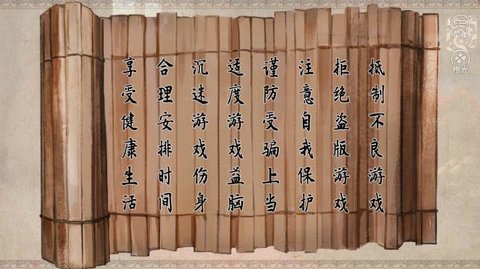 抵制不良游戏
拒绝盗版游戏
注意自我保护
谨防受骗上当
适度游戏益脑
沉迷游戏伤身
合理安排时间
享受健康生活
橙光